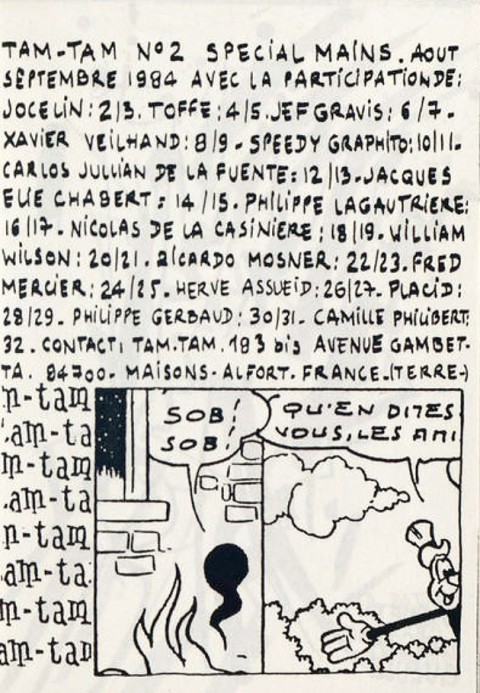 TAM-TAM Nº2 SPECIAL MAINS. AOUT
SEPTEMBRE 1984 AVEC LA PARTICIPATION DE:
JOCELIN: 2/3. TOFFE: 4/5. JEF GRAVIS: 6/7-
XAVIER VEILHAND: 8/9 - SPEEDY GRAPHITO: 10/11-
CARLOS JULLIAN DE LA FUENTE: 12/13. JACQUES
ELIE CHABERT: 14/15. PHILIPPE LAGAUTRIERE:
16/17. NICOLAS DE LA CASINIERE: 18/19. WILLIAM
WILSON: 20/21. RICARDO MOSNER: 22/23. FRED
MERCIER: 24/25. HERVE ASSUEID: 26/27. PLACID:
28/29. PHILIPPE GERBAUD: 30/31. CAMILLE PHILIBERT:
32. CONTACT: TAM.TAM. 183 bis AVENUE GAMBET-
TA. 94700. MAISONS-ALFORT. FRANCE.(TERRE-)
m-tam
am-ta
m-tam
am-ta
m-tam
am-ta
m-tam
am-tam
SOB!
SOB!
QU'EN DITES
VOUS, LES AMI